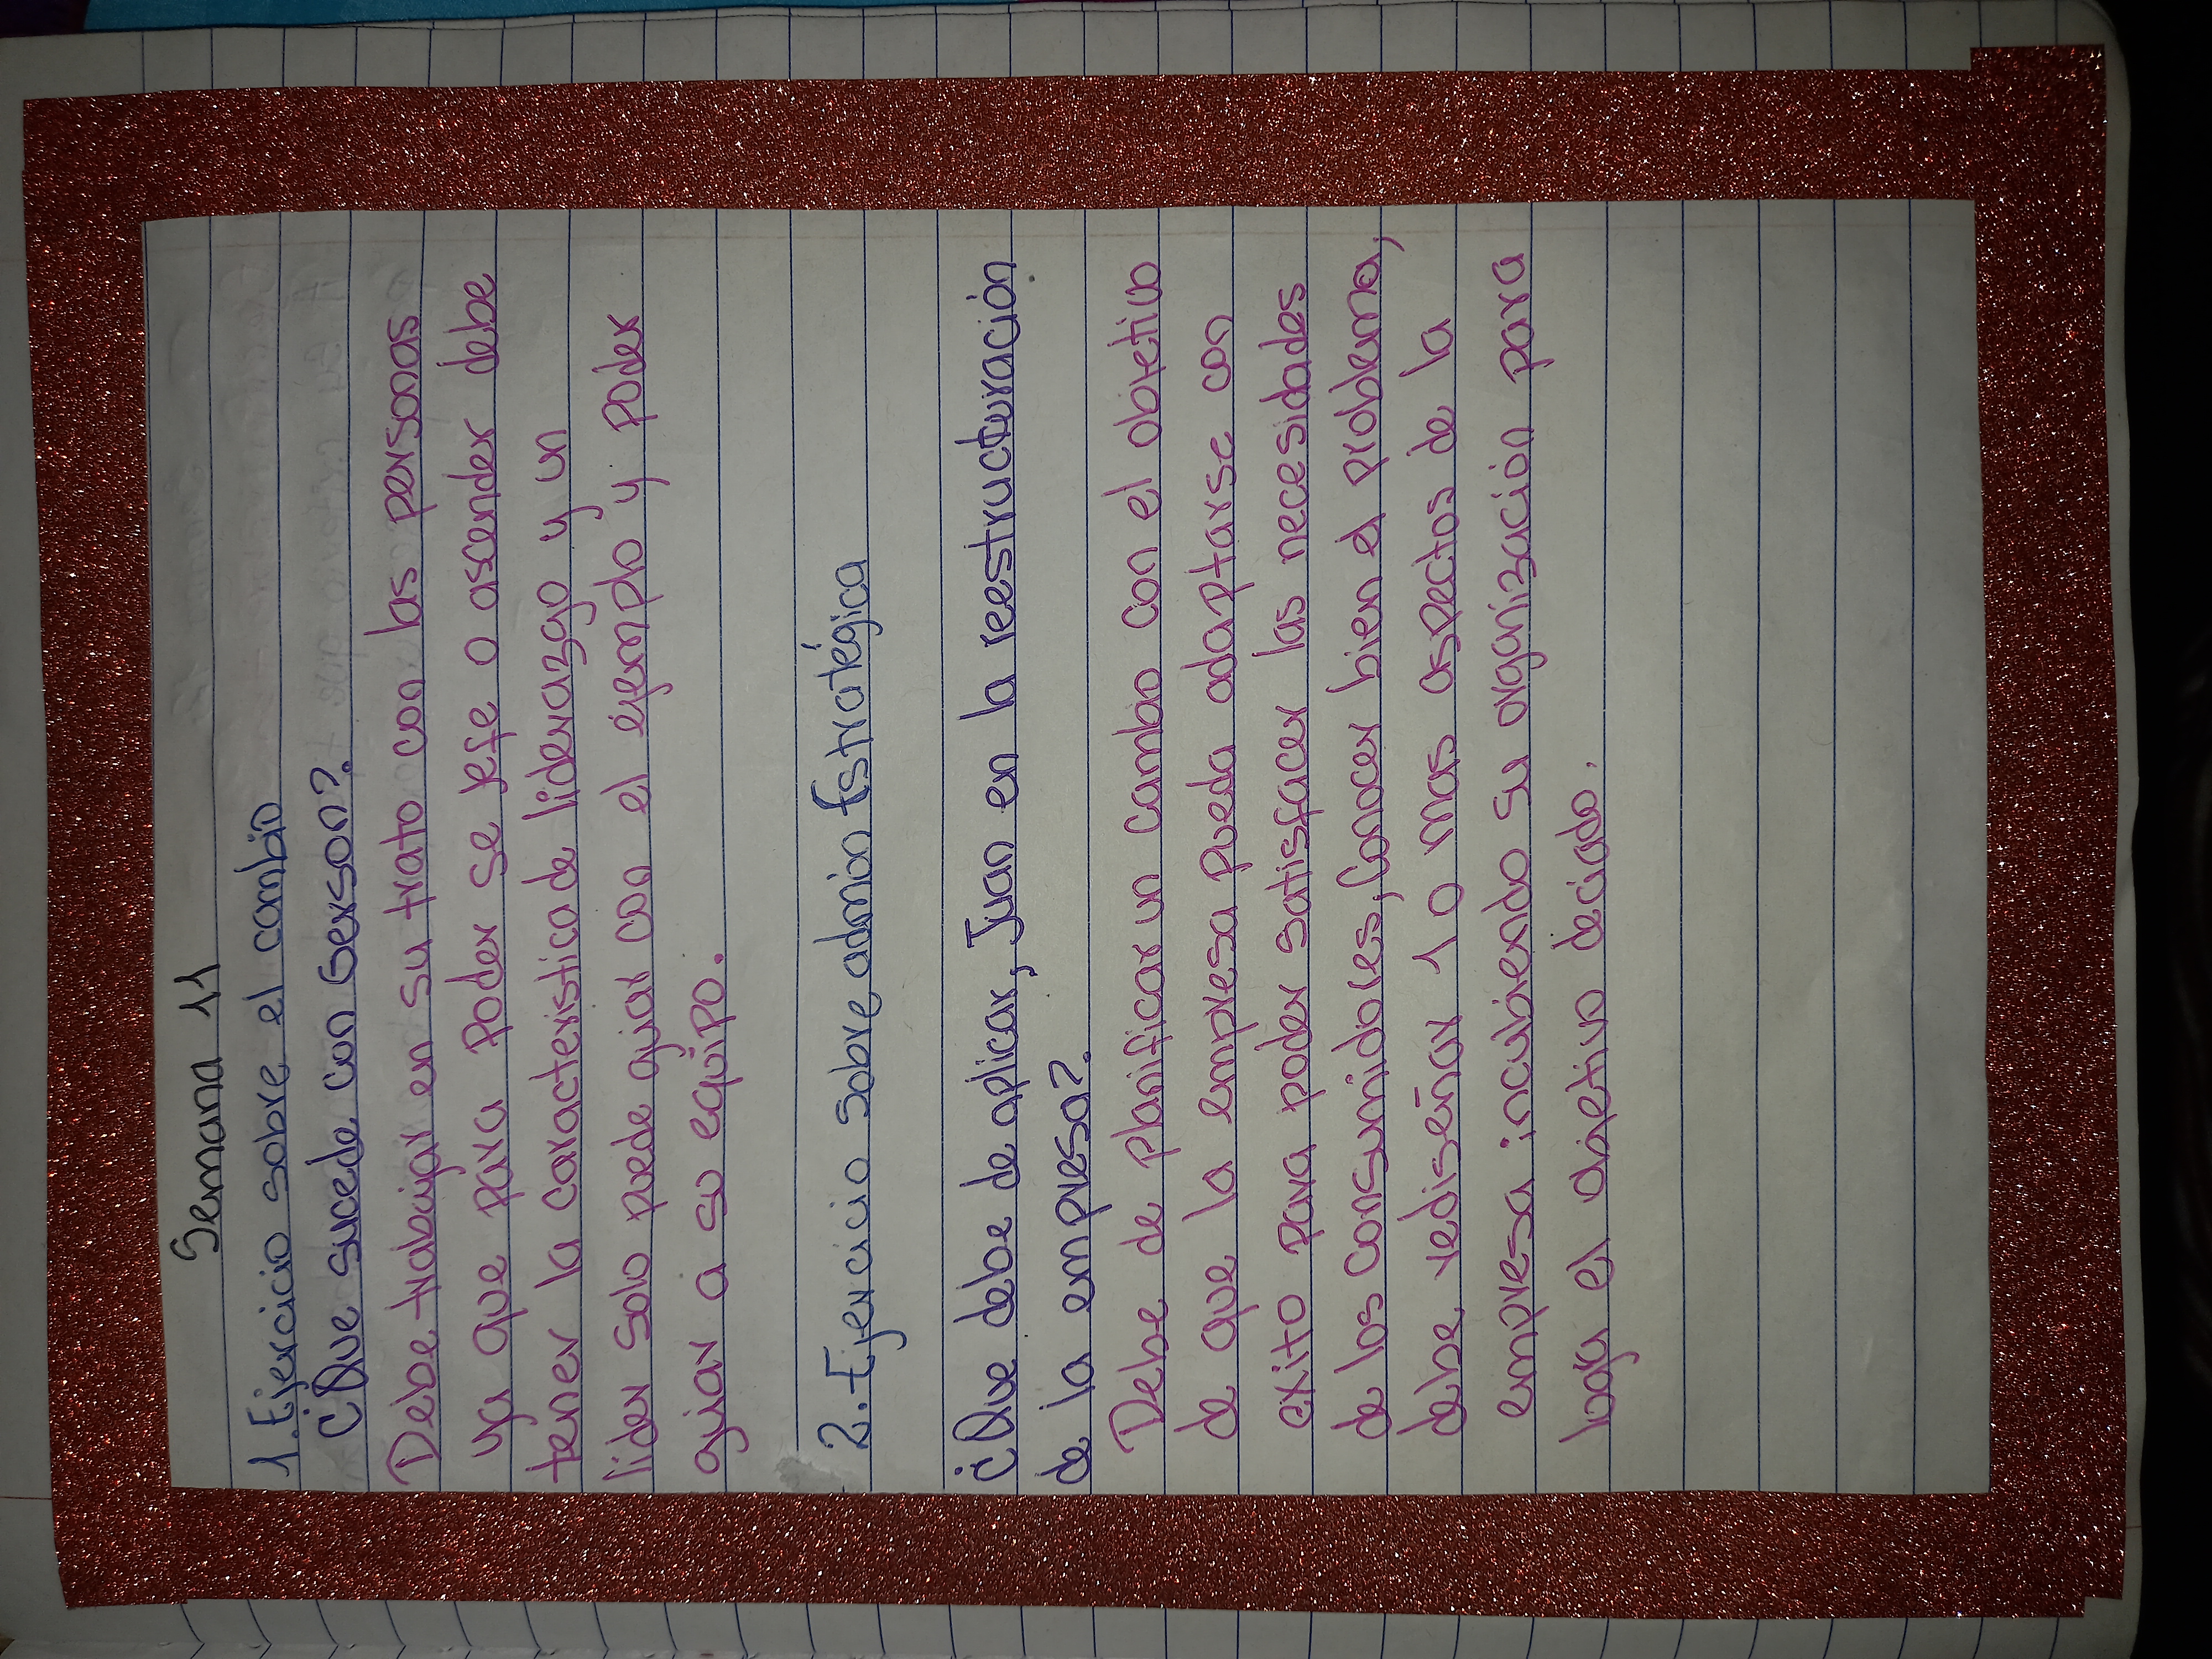 Semana 11
1. Ejercicio sobre el cambio
¿Que sucede con Gerson?.
Debe trabajar en su trato con las personas
ya que para poder se jefe o ascender debe
tener la caracteristica de liderazgo y un
lider solo puede guiar con el ejemplo y poder
guiar a su equipo.
2.- Ejercicio sobre admón Estratégica
¿Que debe de aplicar, Juan en la reestructuración
de la empresa?.
Debe de planificar un cambio con el objetivo
de que la empresa pueda adaptarse con
exito para poder satisfacer las necesidades
de los consumidores, Conocer bien el problema,
debe rediseñar 1 o mas aspectos de la
empresa incubiendo su organización para
logra el objetivo deciado.